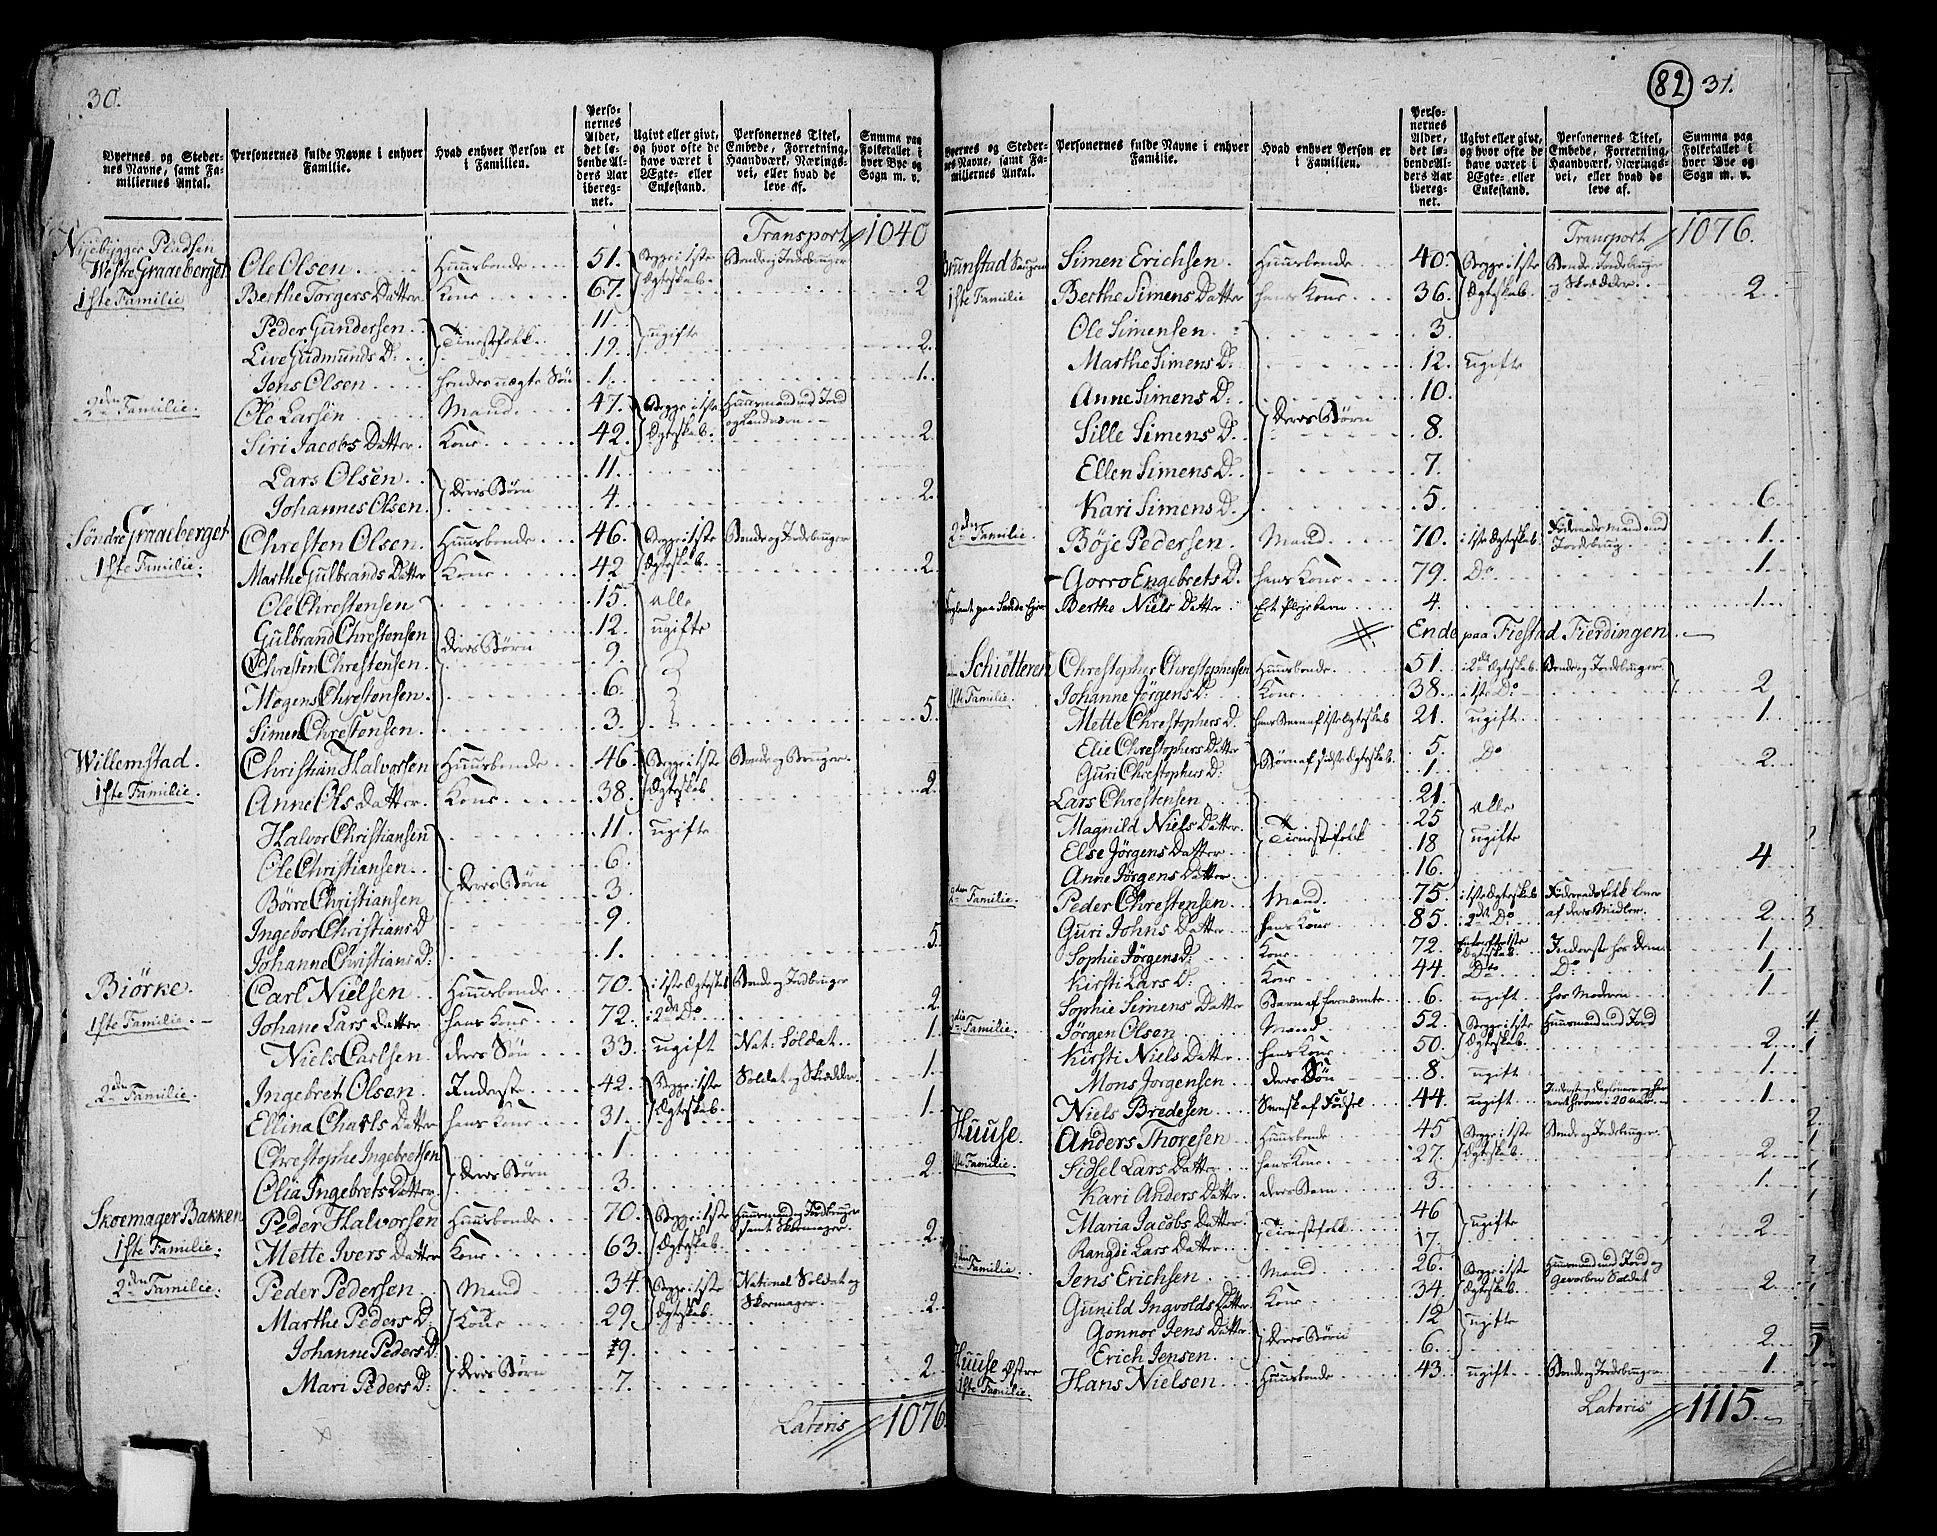 30.
Byernes og Steder-
nes Navne, samt Fa-
miliernes Antal.
Personernes fulde Navne i enhver
Familie.
Hvad enhver Person er
i Familien.
Perso-
nernes
Alder,
det lø-
bende Al-
ders Aar
ibereg-
net.
Ugivt eller givt,
og hvor ofte de
have været i
Ægte- eller
Enkestand.
Personernes Titel,
Embede, Forretning,
Haandværk, Nærings-
vei, eller hvad de
leve af.
Summa paa
Folketallet i
hver Bye og
Sogn m. v.
Transport 1040
Nyebygger Pladsen
Westre Graaeberget Ole Olsen Huusbonde 51. Begge i 1ste Bonde og Jordbruger
1ste Familie Berthe Torgers Datter Kone 67. Ægteskab. 2
Peder Gundersen 11. ugifte
Live Gudmunds D: Tienestfolk 19. 2.
Jens Olsen hendes uægte Søn 1. 1.
2den Familie. Ole Larsen Mand. 47. Begge i 1ste Huusmand med Jord
Siri Jacobs Datter Kone 42. Ægteskab. 2.
Lars Olsen 11.
Johannes Olsen deres Børn 4. 2.
Søndre Graaeberget Chresten Olsen Huusbonde 46. Begge i 1ste Bonde og Jordbruger
1ste Familie. Marthe Gulbrands Datter Kone 42 Ægteskab. 2.
Ole Chrestensen 15. alle
Gulbrand Chrestensen 12. ugifte
Chresten Chrestensen deres Børn 9.
Mogens Chrestensen 6.
Simen Chrestensen. 3. 5.
Willemstad. Christian Halvorsen Huusbonde 46. Begge i 1ste Bonde og Bruger
1ste Familie. Anne Ols Datter. Kone 38. Ægteskab 2.
Halvor Christiansen 11. ugifte
Ole Christiansen. 6.
Børre Christiansen deres Børn 3.
Ingebor Christians D 9.
Johanne Christians D: 1. 5.
Biørke. Carl Nielsen Huusbonde 70. i 1ste Ægteskab Bonde og Jordbruger
1ste Familie. Johane Lars Datter hans Kone 72. 2det Do 2
Niels Carlsen deres Søn 33. ugift Nat: Soldat 1.
2den Familie. Ingebret Olsen Inderste 42. Begge i 1ste Soldat og Skrædder 1.
Ellina Charls Datter hans Kone 31. Ægteskab. 1.
Christophe Ingebretsen 1.
Olia Ingebrets Datter. deres Børn 3. 2.
Skoemager Bakken Peder Halvorsen Huusbonde 70. Begge i 1ste Huusmand og Jordbruger
samt Skoemager.
1ste Familie. Mette Ivers Datter Kone 63. Ægteskab. 2.
2den Familie. Peder Pedersen Mand 34. Begge i 1ste National Soldat og
Marthe Peders D: Kone 29. Ægteskab. Skoemager 2.
Johanne Peders D: 9.
Mari Peders D: deres Børn 7. 2.
Lateris 1076
82 31.
Byernes og Steder-
nes Navne, samt Fa-
miliernes Antal.
Personernes fulde Navne i enhver
Familie.
Hvad enhver Person er
i Familien.
Perso-
nernes
Alder,
det lø-
bende Al-
ders Aar
ibereg-
net.
Ugivt eller givt,
og hvor ofte de
have været i
Ægte- eller
Enkestand.
Personernes Titel,
Embede, Forretning,
Haandværk, Nærings-
vei, eller hvad de
leve af.
Summa paa
Folketallet i
hver Bye og
Sogn m. v.
Transport 1076.
Brunstad Simen Erichsen Huusbonde 40. Begge i 1ste Bonde, Jordbruger
1ste Familie Berthe Simens Datter hans Kone 36. Ægteskab. og Skrædder 2.
Ole Simensen 3.
Marthe Simens D: 12. ugifte
Anne Simens D: 10.
Sille Simens D. deres Børn 8.
Ellen Simens D: 7.
Kari Simens D: 5. 6.
2den Familie. Böje Pedersen Mand 70. i 1ste Ægteskab 1.
Gorro Engebrets D. hans Kone 79. Do 1.
Berthe Niels Datter Et Plejebarn 4. 1.
Ende paa Fiestad Fierdingen
Schiötteren Christopher Christophersen Huusbonde 51. i 2det Ægteskab Bonde og Jordbruger
1ste Familie. Johanne Jørgens D: Kone 38. i 1ste Do 2
Mette Christophers D. hans Barn af 1ste Ægteskab 21. ugift 1.
Elie Christophers Datter 5. Do
Guri Christophers D: Børn af sidste Ægteskab. 1. 2.
Lars Chrestensen 21. alle
Magnild Niels Datter. 25 ugifte
Else Jörgens Datter Tienestfolk 18
Anne Jörgens Datter. 16. 4
2den Familie. Peder Chrestensen Mand 75. i 1ste Ægteskab Föderaadsfolk lever
Guri Johns Datter hans Kone 85. 2det Do af deres Midler 2
Sophie Jörgens D: Kone 72. Enke efter 1ste Ægteskab. Inderste hos dem 1.
Kirsti Lars D: Kone 44. Do Do 1.
Sophie Simens Datter Barn af forommelte 6. ugift hos Moderen 1.
3die Familie. Jörgen Olsen Mand 52. Begge i 1ste Huusmand med Jord
Kirsti Niels Datter hans Kone 50. Ægteskab. 2.
Mons Jorgensen deres Søn 8. ugift 1.
Niels Bredesen Svensk af Födsel 44. ugift 1.
Huuse. Anders Thoresen Huusbonde 45 Begge i 1ste Bonde og Jordbruger
1ste Familie. Sidsel Lars Datter hans Kone 27. Ægteskab. 2.
Kari Anders Datter. deres Barn 3. 1.
Maria Jacobs Datter 46 ugifte
Rangdi Lars Datter Tienestfolk 17. 2
2den Familie. Jens Erichsen Mand 26. Begge i 1ste Huusmand med Jord og
Gunild Ingvolds Datter. Kone 34. Ægteskab. Gevorben Soldat 2.
Gonnor Jens Datter 12 ugifte
Erich Jensen deres Börn 6. 2.
Huuse Østre Hans Nielsen Huusbonde 43. ugift Bonde og Jordbruger 1.
1ste Familie.
Lateris 1115.